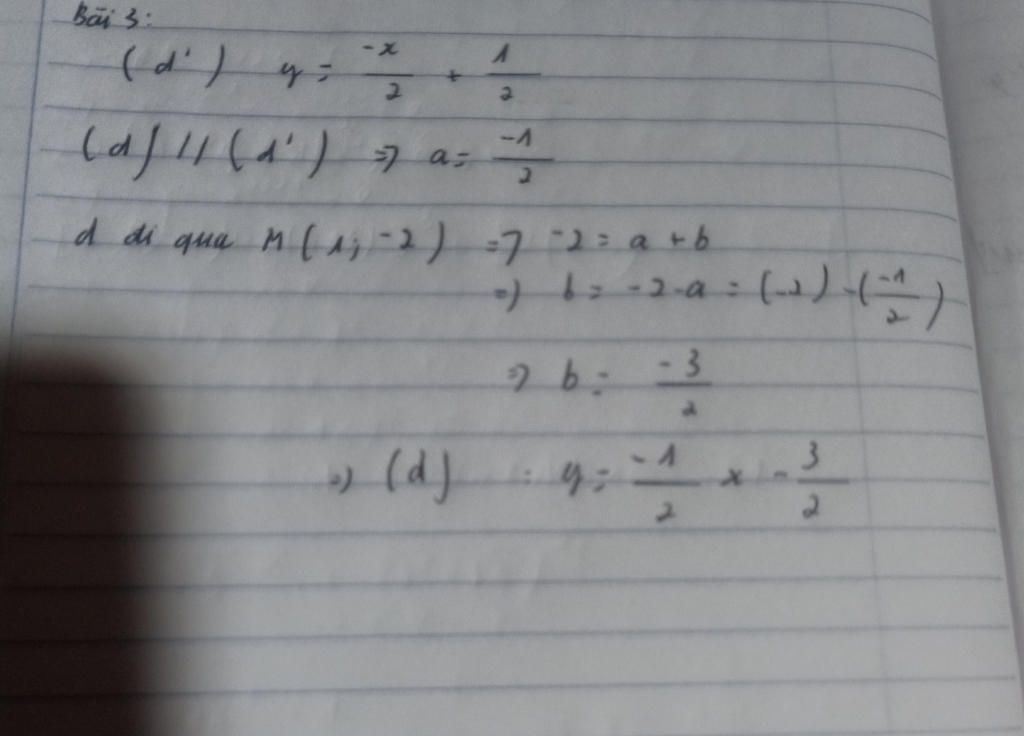 Bài 3:
(d') y = -x/2 + 1/2
(d) // (d') => a = -1/2
d đi qua M(1; -2) => -2 = a + b
=> b = -2 - a = (-2) - (-1/2)
=> b = -3/2
=> (d) : y = -1/2 x - 3/2